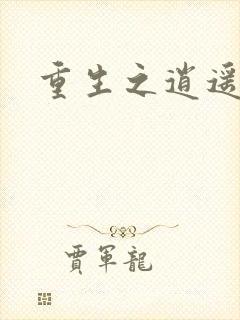 重生之逍遥
賈軍龍